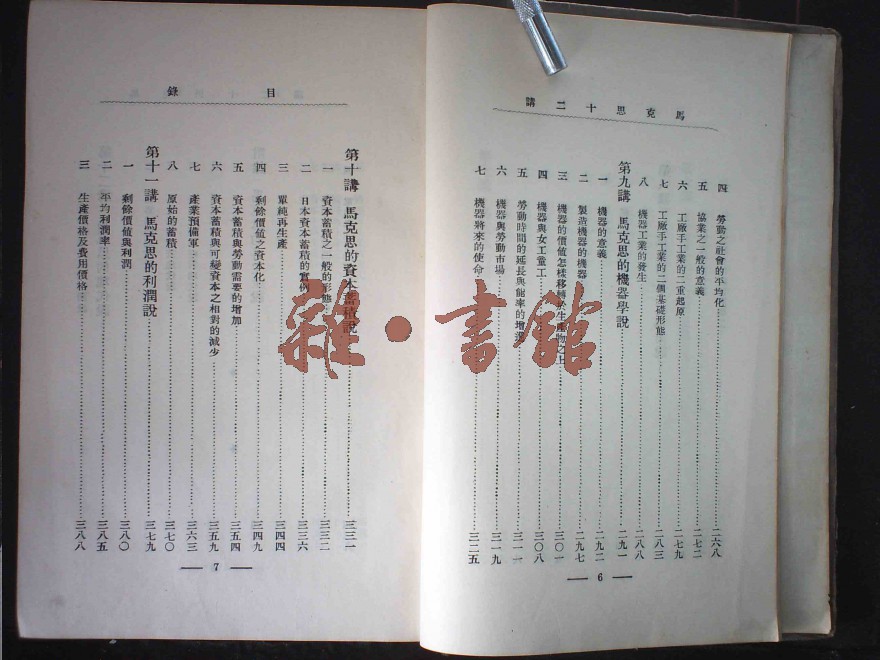 馬克思十二講
四 勞動之社會的平均化……二六八
五 協業之一般的意義……二七二
六 工廠手工業的二重起原……二七九
七 工廠手工業的二個基礎形態……二八三
八 機器工業的發生……二八八
第九講 馬克思的機器學說……二九一
一 機器的意義……二九二
二 製造機器的機器……二九七
三 機器的價值怎樣移轉於生產物之上……三〇一
四 機器與女工童工……三〇八
五 勞動時間的延長與能率的增進……三一一
六 機器與勞動市場……三一九
七 機器將來的使命……三二五
— 6 —
目錄
第十講 馬克思的資本蓄積說……三三一
一 資本蓄積之一般的形態……三三二
二 日本資本蓄積的實例……三三六
三 單純再生產……三四四
四 剩餘價值之資本化……三四九
五 資本蓄積與勞動需要的增加……三五四
六 資本蓄積與可變資本之相對的減少……三五九
七 產業預備軍……三六三
八 原始的蓄積……三七〇
第十一講 馬克思的利潤說……三七九
一 剩餘價值與利潤……三八〇
二 平均利潤率……三八五
三 生產價格及費用價格……三八八
— 7 —
雜·書館